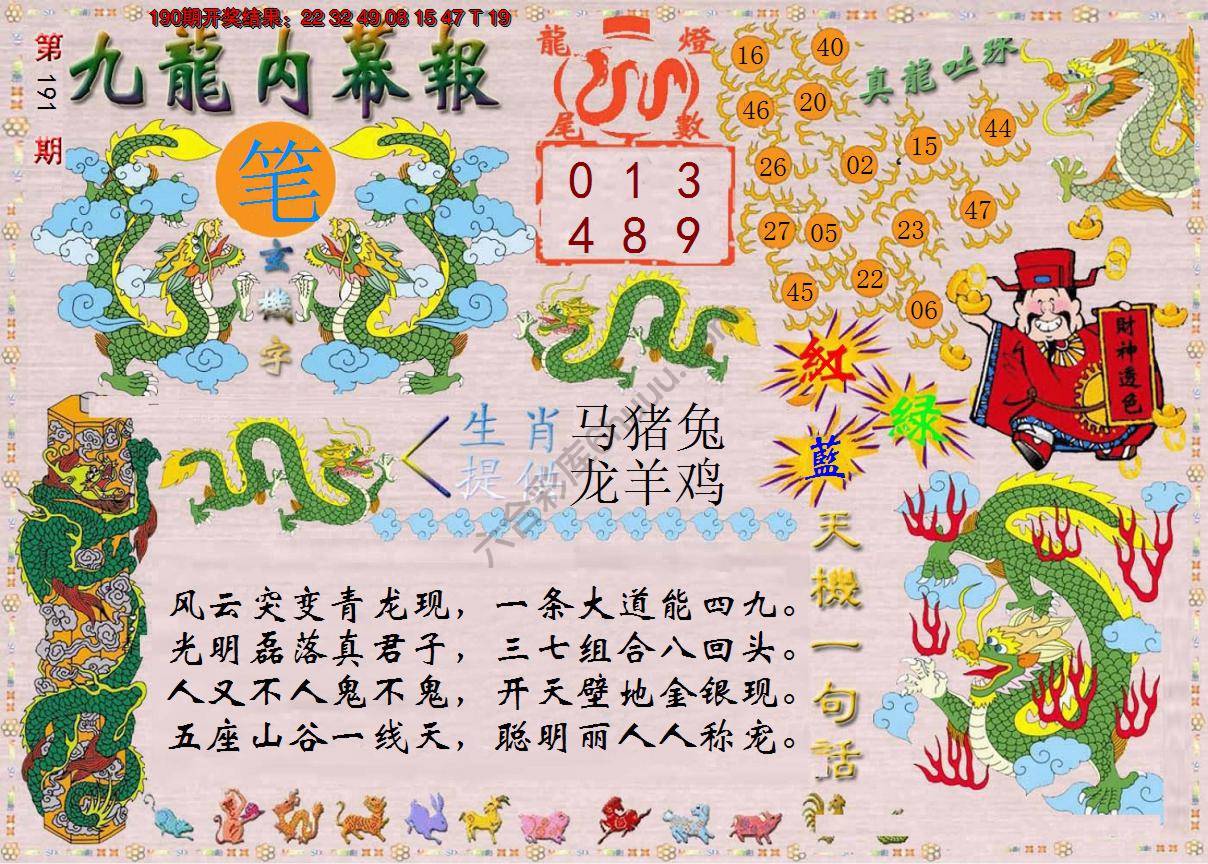 190期开奖结果：22 32 49 08 15 47 T 19
第191期
九龍内幕報
笔
玄機字
龍燈
尾數
0 1 3
4 8 9
真龍吐珠
16
40
46
20
15
44
26
02
47
27
05
23
45
22
06
財神透色
紅
綠
藍
生肖
提供
马猪兔
龙羊鸡
天機一句話
风云突变青龙现，一条大道能四九。
光明磊落真君子，三七组合八回头。
人又不人鬼不鬼，开天壁地金银现。
五座山谷一线天，聪明丽人人称宠。